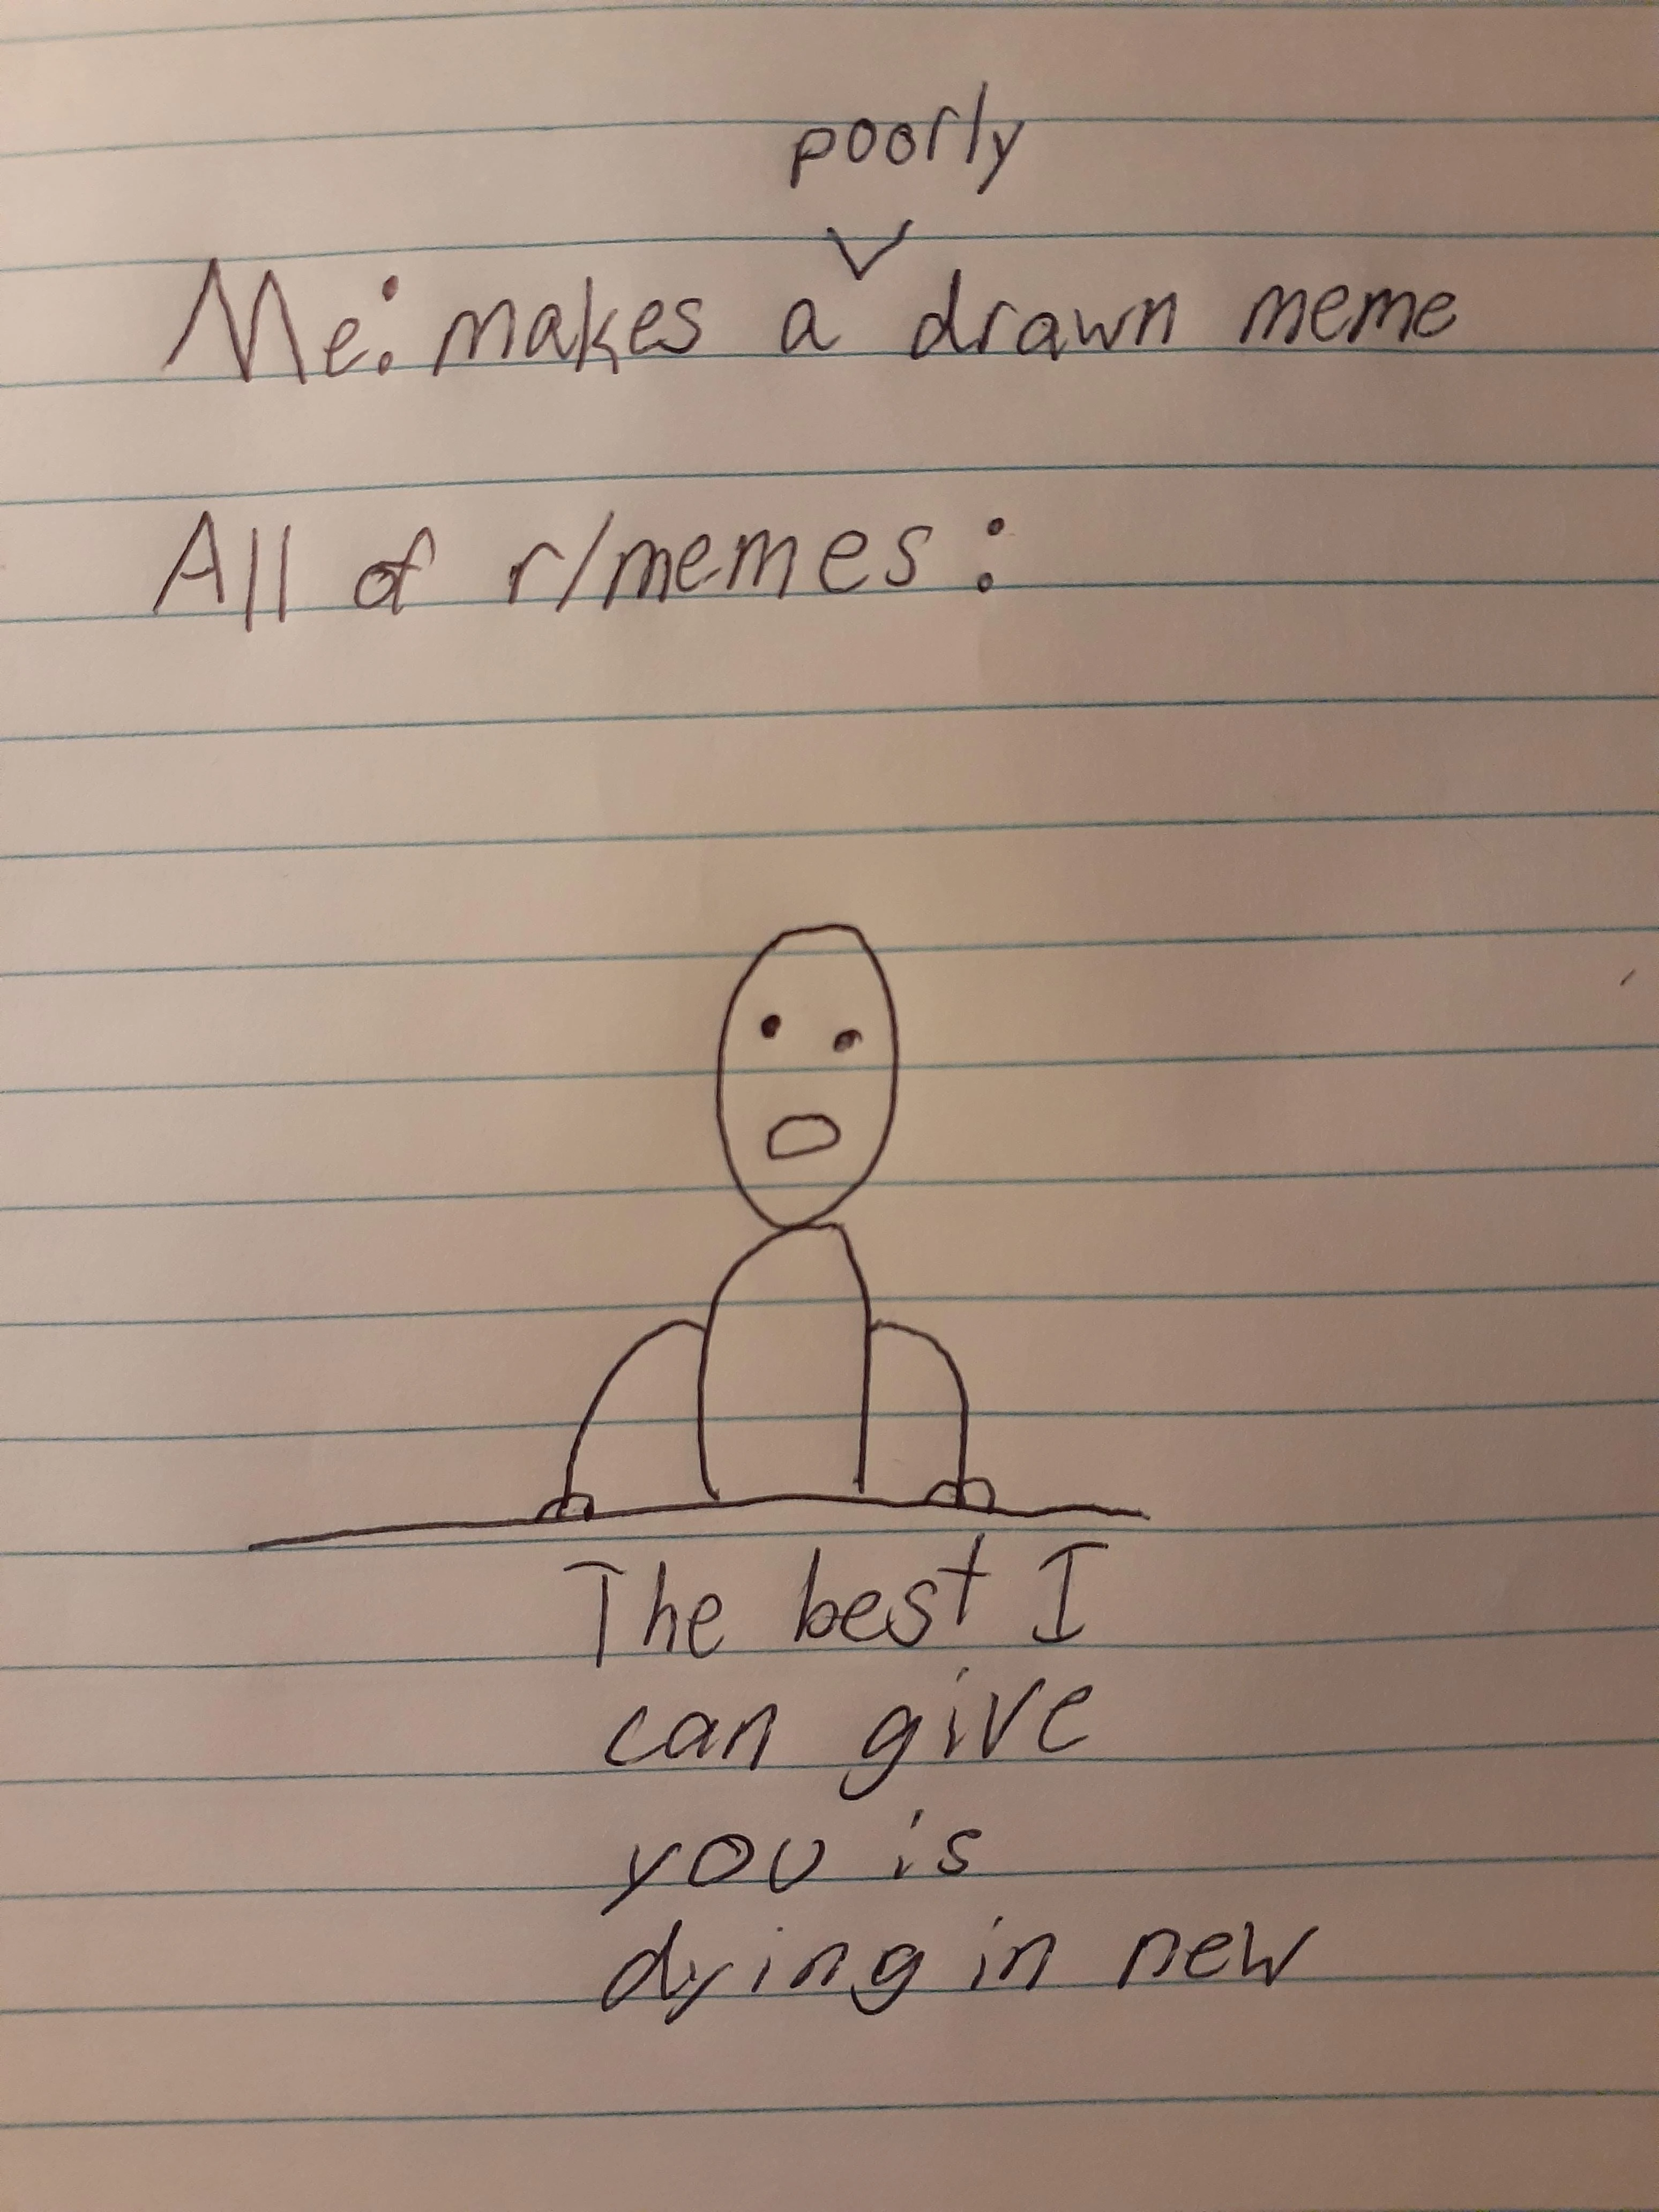 poorly
Me: makes a ⌄ drawn meme
All of r/memes:
The best I
can give
you is
dying in new